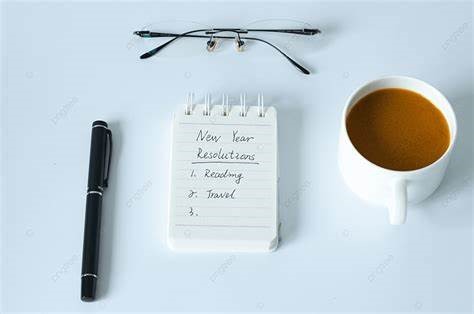 New Year
Resolutions
1. Reading
2. Travel
3.